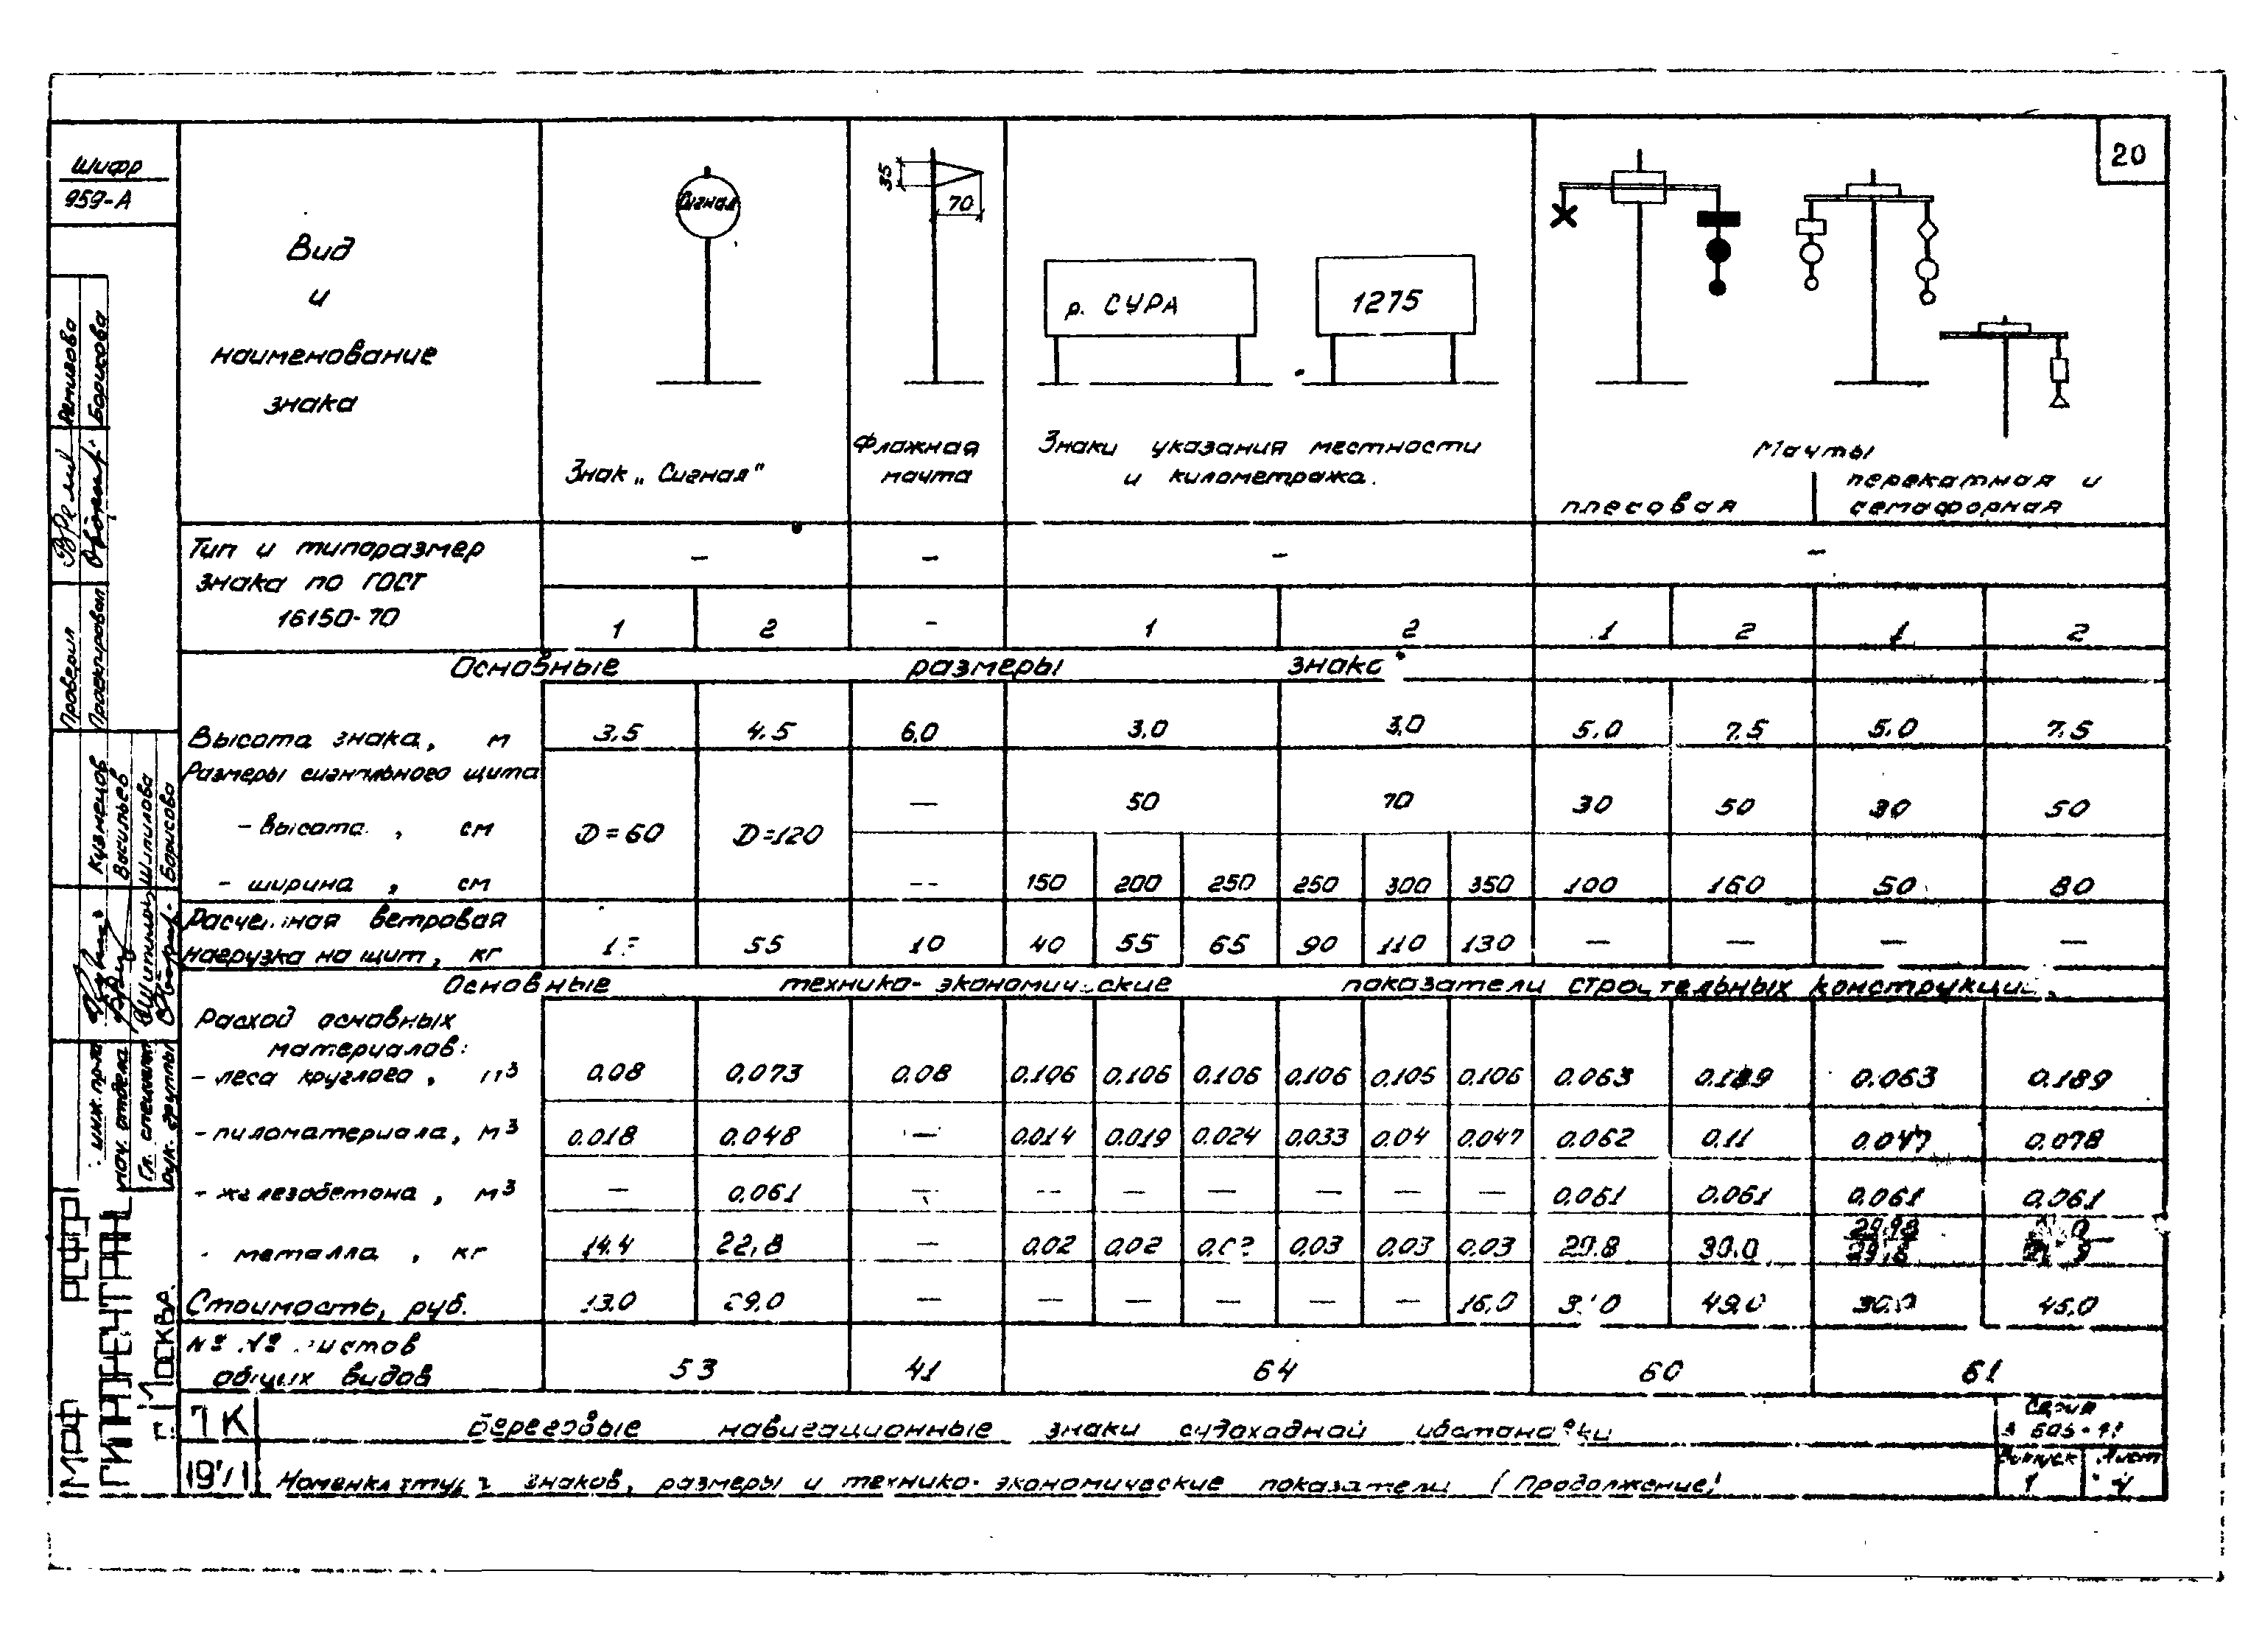 20
Шифр
959-А
Вид
и
наименование
знака
Сигнал
35
70
р. СУРА
1275
Знак „Сигнал"
Флажная
мачта
Знаки указания местности
и километража.
Мачты
плесовая
перекатная и
семафорная
Тип и типоразмер
знака по ГОСТ
16150-70
- - - -
1 2 - 1 2 1 2 1 2
Основные размеры знака
Высота знака, м 3.5 4.5 6.0 3,0 3,0 5.0 7.5 5.0 7.5
Размеры сигнального щита
- высота, см D=60 D=120 — 50 70 30 50 30 50
- ширина, см -- 150 200 250 250 300 350 100 160 50 80
Расчетная ветровая
нагрузка на щит, кг 55 10 40 55 65 90 110 130 — — — —
Основные технико-экономические показатели строительных конструкций.
Расход основных
материалов:
- леса круглого, м³ 0.08 0,073 0.08 0.106 0.106 0.106 0.106 0.106 0.063 0.189 0.063 0.189
- пиломатериала, м³ 0.018 0.048 — 0.014 0.019 0.024 0.033 0.04 0.047 0.062 0.11 0.047 0.078
- железобетона, м³ — 0.061 — -- — — — — — 0.061 0.061 0.061 0.061
- металла, кг 14.4 22,8 — 0.02 0.02 0.03 0.03 0.03 29.8 39.0
Стоимость, руб. 13.0 — — — — — — 16,0 49.0 30.0 45.0
№ № листов
общих видов 53 41 64 60 61
ТК
1971
Береговые навигационные знаки судоходной обстановки
Номенклатура знаков, размеры и технико-экономические показатели (Продолжение)
Серия
Выпуск
1
Лист
4
Ремизова
Борисова
Проверил
Проектировал
Кузнецов
Васильев
Шипилова
Борисова
инж. пр-та
нач. отдела
Гл. специалист
рук. группы
МРФ РСФСР
ГИПРОРЕЧТРАНС
г. Москва.